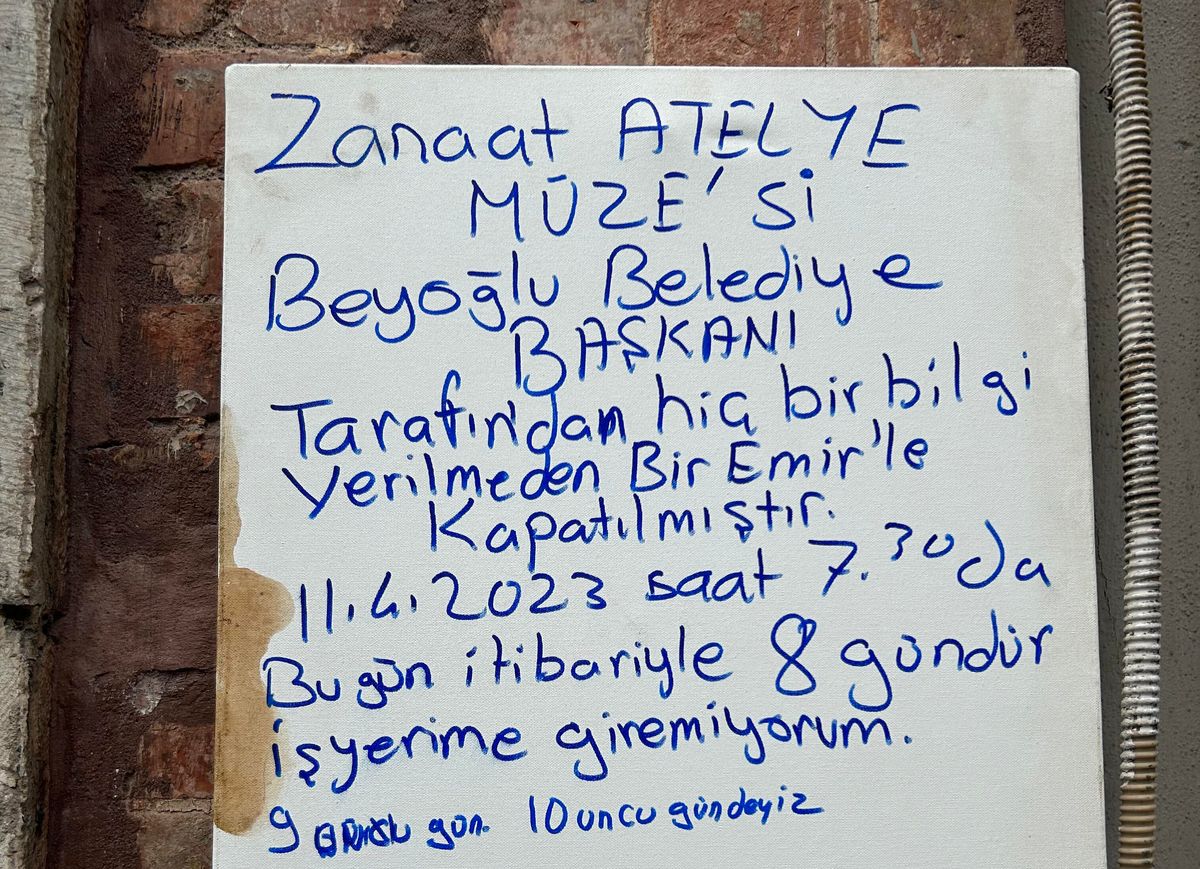 Zanaat ATELYE
MÜZE'Sİ
Beyoğlu Belediye
BAŞKANI
Tarafın'dan hiç bir bilgi
Verilmeden Bir Emir'le
Kapatılmıştır.
11.4.2023 saat 7.30 da
Bu gün itibariyle 8 gündür
işyerime giremiyorum.
9 gün. 10 uncu gündeyiz